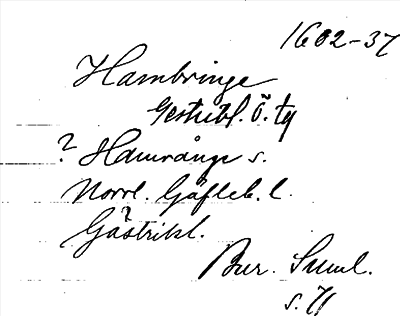 1602-37
Hambringe
Gestribl. Ö. ty
? Hamrånge s.
Norrl. Gäfleb. l.
Gästrikl.
Bur. Suml.
s. 71